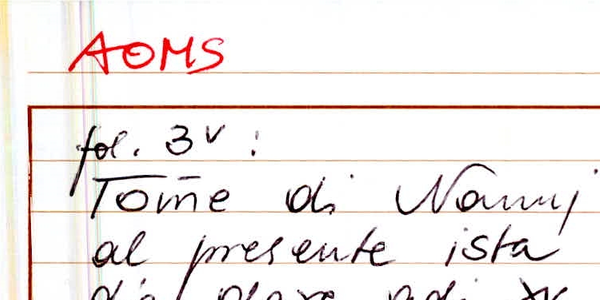 AOMS
fol. 3v:
Tome di Nannj
al presente ista